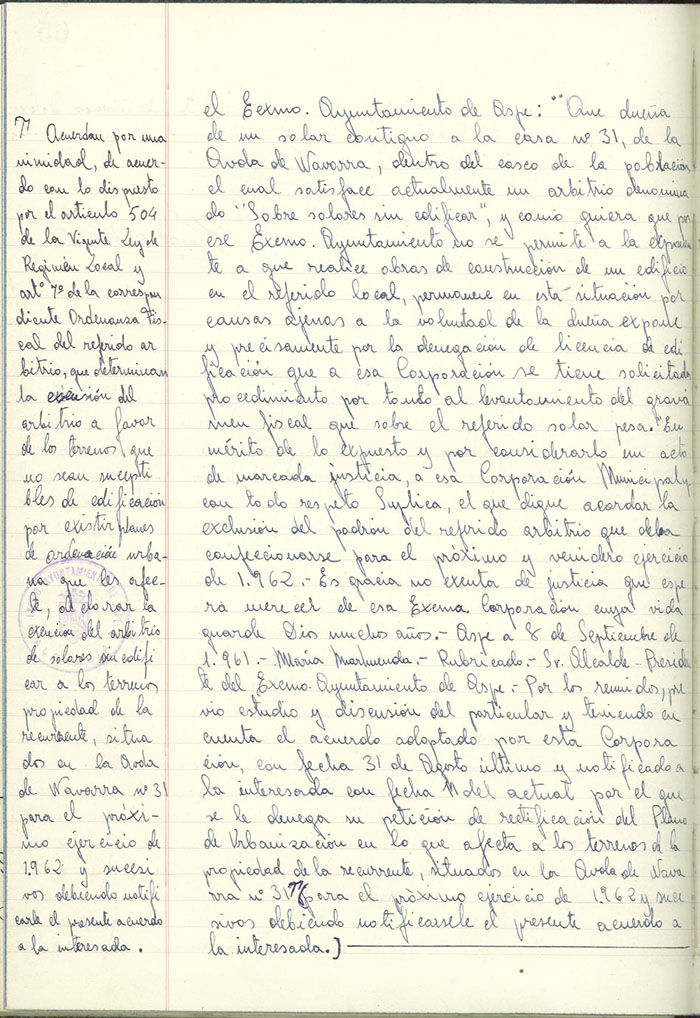 el Eexmo. Ayuntamiento de Aspe: "Que dueña
de un solar contiguo a la casa nº 31, de la
Avda de Navarra, dentro del casco de la población
el cual satisface actualmente un arbitrio denomina
do "Sobre solares sin edificar", y como quiera que por
ese Exemo. Ayuntamiento no se permite a la exponen
te a que realice obras de construcción de un edificio
en el referido local, permanece en esta situación por
causas ajenas a la voluntad de la dueña expone
y precisamente por la denegación de licencia de edi
ficación que a esa Corporación se tiene solicitada
procedimiento por tando al levantamiento del grava
men fiscal que sobre el referido solar pesa." En
mérito de lo expuesto y por considerarlo un acto
de marcada justicia, a esa Corporación Municipal y
con todo respeto Suplica, el que digue acordar la
exclusión del padrón del referido arbitrio que deba
confeccionarse para el próximo y venidero ejercicio
de 1.962 - Es gracia no exenta de justicia que espe
ra merecer de esa Exema Corporación cuya vida
guarde Dios muchos años.- Aspe a 8 de Septiembre de
1.961.- María Marhuenda.- Rubricado.- Sr. Alcalde-Preside
te del Exemo. Ayuntamiento de Aspe.- Por los reunidos, pre
vio estudio y discusión del particular y teniendo en
cuenta el acuerdo adoptado por esta Corpora
ción, con fecha 31 de Agosto último y notificado a
la interesada con fecha 11 del actual por el que
se le denega su petición de rectificación del Plano
de Urbanización en lo que afecta a los terrenos de la
propiedad de la recurrente, situados en la Avda de Nava
rra nº 31 para el próximo ejercicio de 1.962 y suce
sivos debiendo notificarsele el presente acuerdo a
la interesada.)
Acuerdan por una
nimidad, de acuer-
do con lo dispuesto
por el articulo 504
de la Vigente Ley de
Regimén Local y
artº 7º de la correspon
diente Ordenanza Fis-
cal del referido ar
bitrio, que determinan
la exención del
arbitrio a favor
de los terrenos que
no sean suscepti
bles de edificación
por existir planes
de ordenación urba-
na que les afec-
te, declarar la
exención del arbitrio
de solares sin edifi
car a los terrenos
propiedad de la
recurrente, situa
dos en la Avda
de Navarra nº 31
para el próxi-
mo ejercicio de
1.962 y sucesi
vos debiendo notifi
carle el presente acuerdo
a la interesada.